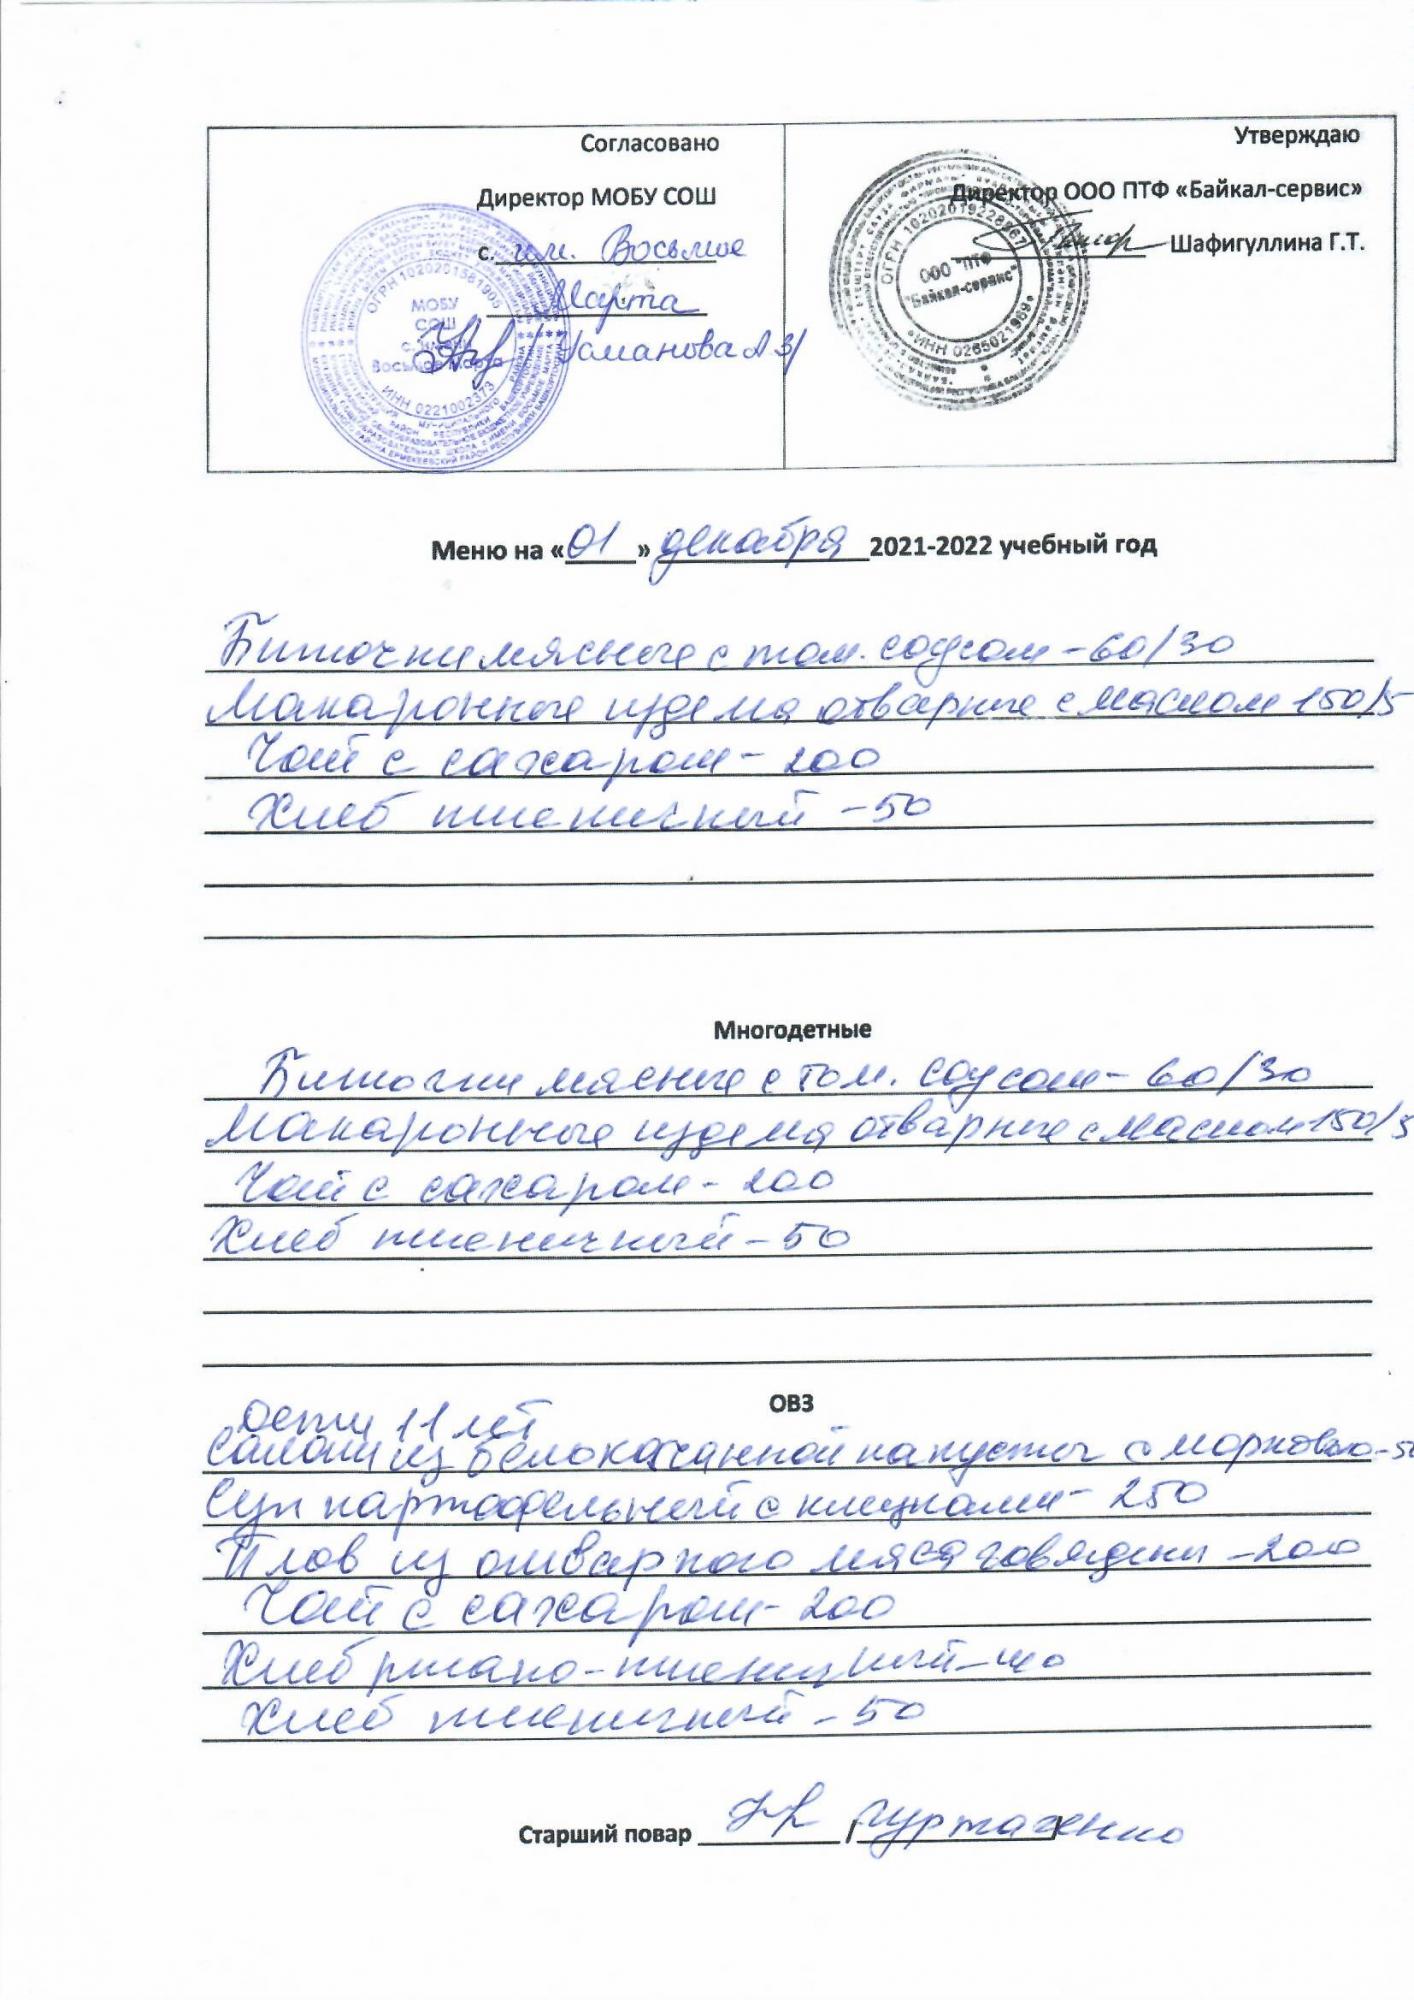 Согласовано
Директор МОБУ СОШ
с. им. Восьмое
Марта
/Усманова А З/
МОБУ
СОШ
с. имени
Восьмое Марта
ОГРН 1020201581905
ИНН 0221002373
Утверждаю
Директор ООО ПТФ «Байкал-сервис»
Шафигуллина Г.Т.
ООО "ПТФ
"Байкал-сервис"
ИНН 0265021969
Меню на «01» декабря 2021-2022 учебный год
Биточки мясные с том. соусом - 60/30
Макаронные изделия отварные с маслом 150/5
Чай с сахаром - 200
Хлеб пшеничный - 50
Многодетные
Биточки мясные с том. соусом - 60/30
Макаронные изделия отварные с маслом 150/5
Чай с сахаром - 200
Хлеб пшеничный - 50
ОВЗ
дети 11 лет
Салат из белокочанной капусты с морковью -50
Суп картофельный с клецками - 250
Плов из отварного мяса говядины - 200
Чай с сахаром - 200
Хлеб ржано-пшеничный - 40
Хлеб пшеничный - 50
Старший повар / /